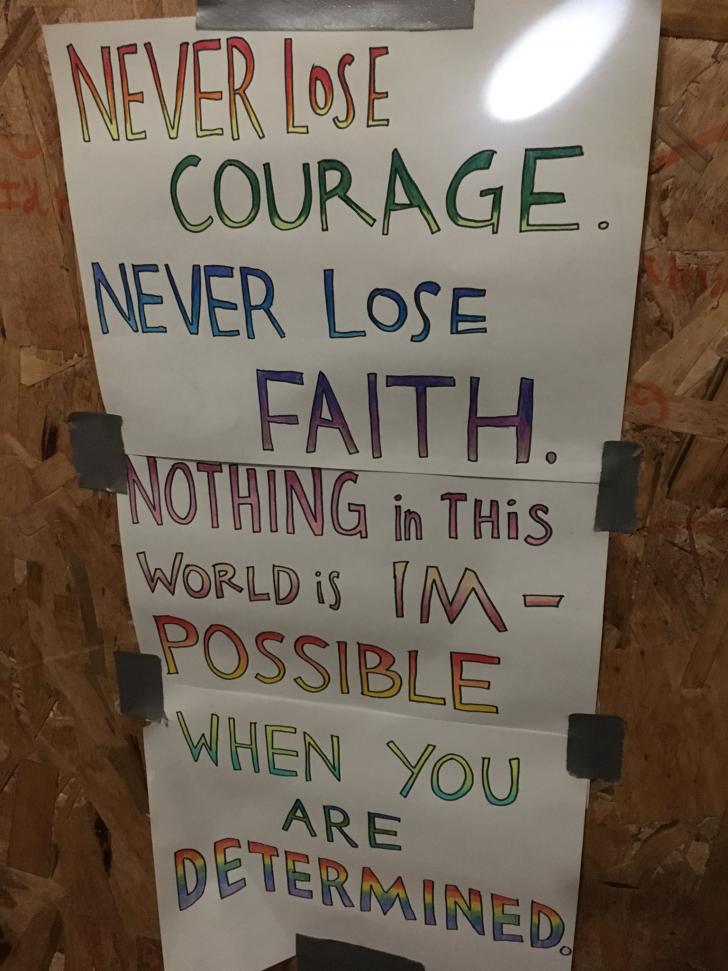 NEVER LOSE
COURAGE.
NEVER LOSE
FAITH.
NOTHING in THiS
WORLD iS IM-
POSSIBLE
WHEN YOU
ARE
DETERMINED.